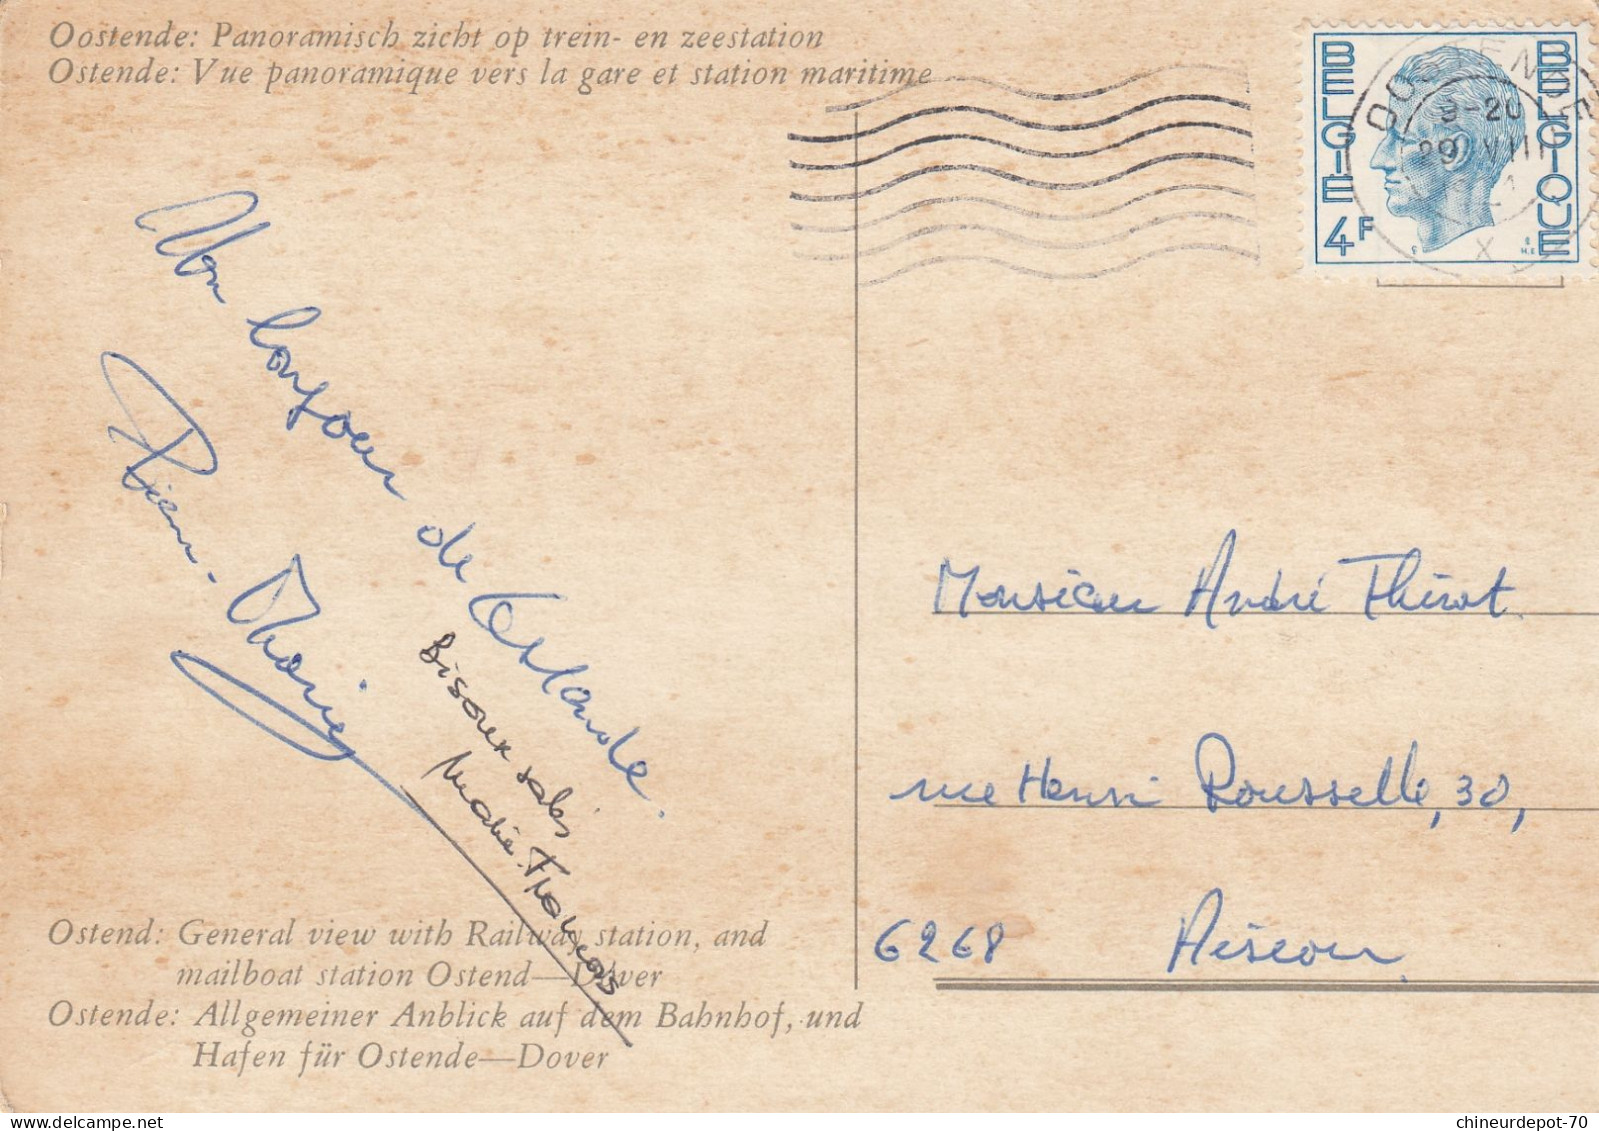 Oostende: Panoramisch zicht op trein- en zeestation
Ostende: Vue panoramique vers la gare et station maritime
BELGIE
BELGIQUE
4F
OOSTENDE
9-20
29 VIII
X
Mon bonjour
de Ostende.
Pierre-Marie
Bisoux salés
Marie-François
Monsieur André Thirot
rue Henri Rousselle, 30,
6268 Aiseau.
Ostend: General view with Railway station, and
mailboat station Ostend—Dover
Ostende: Allgemeiner Anblick auf dem Bahnhof, und
Hafen für Ostende—Dover
chineurdepot-70